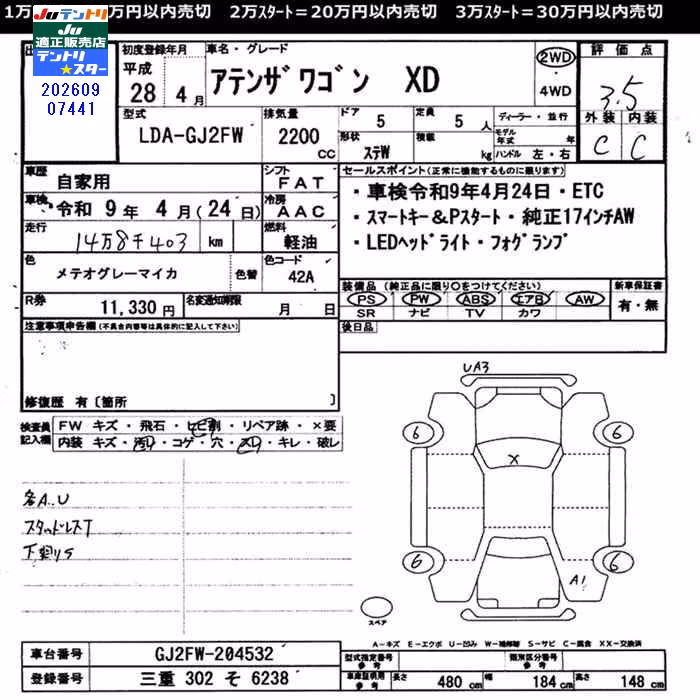 1万 万円以内売切 2万ｽﾀｰﾄ＝20万円以内売切 3万ｽﾀｰﾄ＝30万円以内売切
Juテントリ
Ju
適正販売店
テントリ
★スター
202609
07441
初度登録年月
平成
28 4月
車名・グレード
ｱﾃﾝｻﾞ ﾜｺﾞﾝ XD
2WD
4WD
評価点
3.5
外装 内装
C C
型式
LDA-GJ2FW
排気量
2200
cc
ドア
5
定員
5人
形状
ｽﾃW
積載
kg
ディーラー・並行
モデル年式 年
ハンドル 左・右
車歴
自家用
シフト
FAT
車検
令和 9年 4月(24日)
冷房
AAC
走行
14万8千403 km
燃料
軽油
色
メテオグレーマイカ
色替
色コード
42A
R券
11,330円
名変通知期限
月 日
セールスポイント(正常に機能するものに限ります)
・車検令和9年4月24日・ETC
・ｽﾏｰﾄｷｰ&Pｽﾀｰﾄ・純正17ｲﾝﾁAW
・LEDﾍｯﾄﾞﾗｲﾄ・ﾌｫｸﾞﾗﾝﾌﾟ
装備品(純正品に限り○をつけてください)
PS PW ABS エアB AW
SR ナビ TV カワ
新車保証書
有・無
後日品
注意事項申告欄(不具合内容等は具体的に記入して下さい)
修復歴 有〔箇所 〕
検査員記入欄
FW キズ・飛石・ヒビ割・リペア跡・×要
内装 キズ・汚れ・コゲ・穴・スレ・キレ・破レ
各A..U
スタッドレスT
下廻りS
UA3
6
6
X
6
6
A1
スペア
A－キズ E－エクボ U－凹み W－補修跡 S－サビ C－腐食 XX－交換済
車台番号
GJ2FW-204532
登録番号
三重 302 そ 6238
型式指定番号
参考
類別区分番号
参考
車庫証明用
参考
長さ 480cm 幅 184cm 高さ 148cm